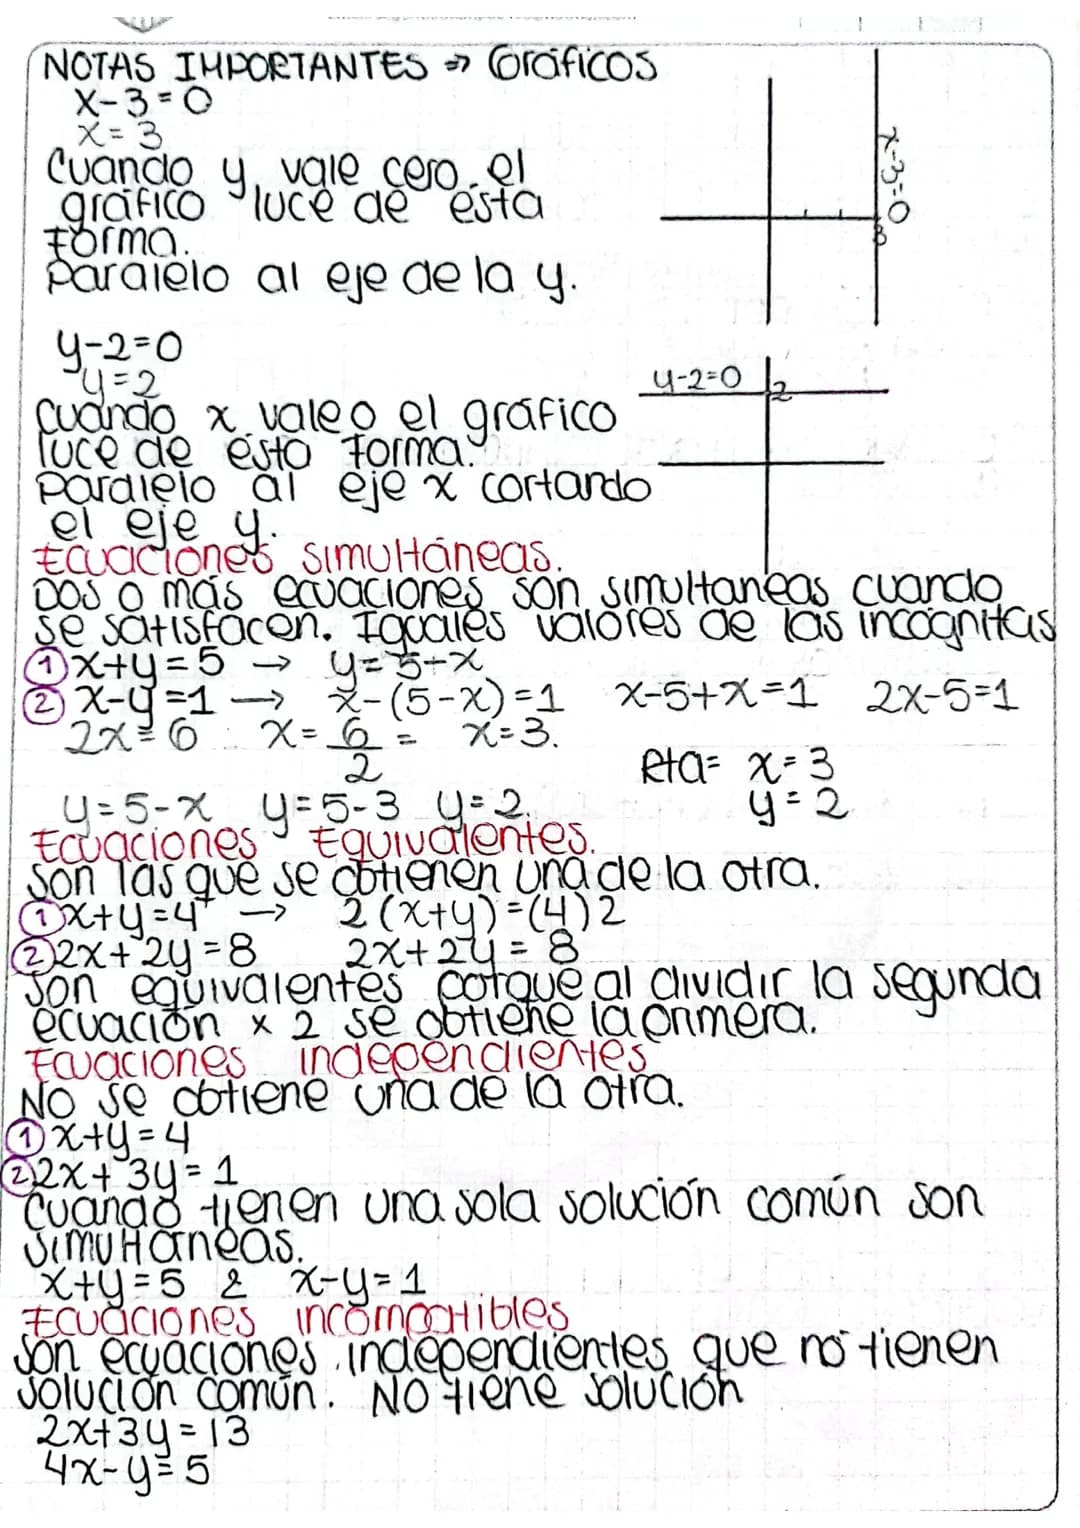 NOTAS IMPORTANTES => Gráficos
x-3=0
x=3
Cuando y vale cero el
gráfico luce de esta
forma.
Paralelo al eje de la y.
x-3=0
3
y-2=0
y=2
Cuando x vale 0 el gráfico
luce de esta forma.
Paralelo al eje x cortando
el eje y.
y-2=0
2
Ecuaciones simultáneas.
Dos o más ecuaciones son simultaneas cuando
se satisfacen. Iguales valores de las incógnitas
① x+y=5 → y=5+x
② x-y=1 → x-(5-x)=1 x-5+x=1 2x-5=1
2x=6 x=6/2= x=3.
Rta= x=3
y=2
y=5-x y=5-3 y=2.
Ecuaciones Equivalentes.
Son las que se obtienen una de la otra.
① x+y=4 → 2(x+y)=(4)2
② 2x+2y=8 2x+2y=8
Son equivalentes porque al dividir la segunda
ecuación x 2 se obtiene la primera.
Ecuaciones independientes
No se obtiene una de la otra.
① x+y=4
② 2x+3y=1
Cuando tienen una sola solución común son
simultáneas.
x+y=5 & x-y=1
Ecuaciones incompatibles
Son ecuaciones independientes que no tienen
solución común. No tiene solución
2x+3y=13
4x-y=5